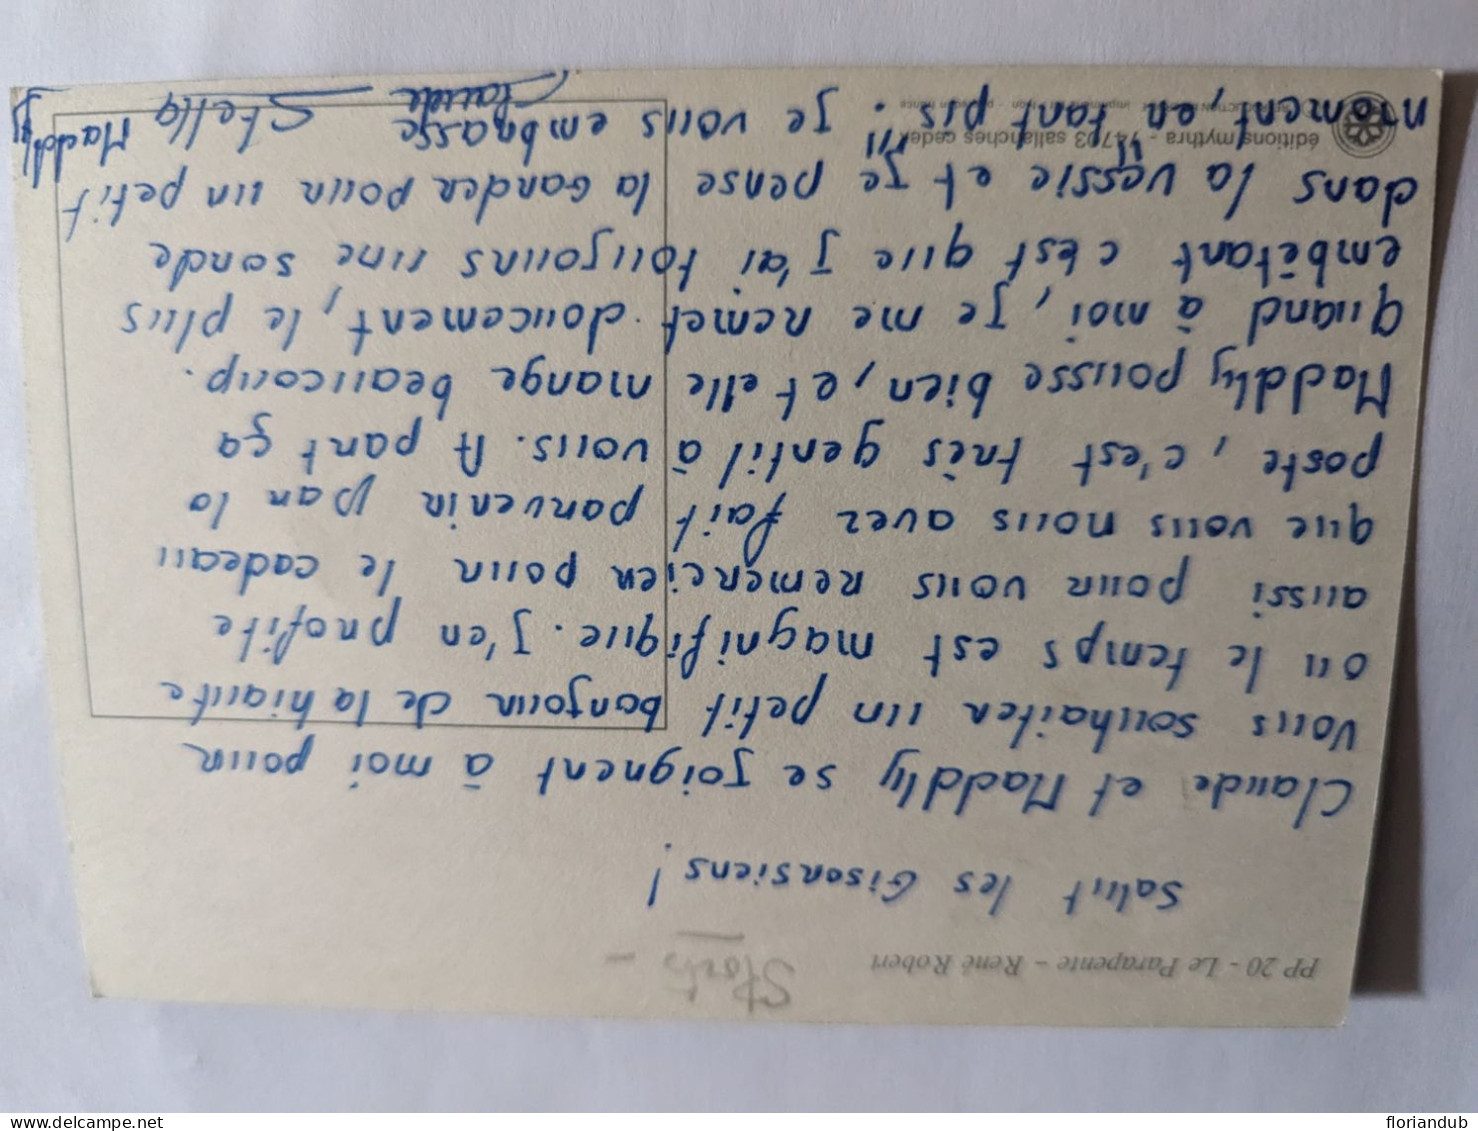 PP 20 - Le Parapente - René Robert
Sports -
Salut les Gisorsiens !
Claude et Maddly se joignent à moi pour
vous souhaiter un petit bonjour de la hiaute
ou le temps est magnifique. J'en profite
aussi pour vous remercier pour le cadeau
que vous nous avez fait parvenir par la
poste, c'est très gentil à vous. A part ça
Maddly pousse bien, et elle mange beaucoup.
Quand à moi, je me remet doucement, le plus
embêtant c'est que j'ai toujours une sonde
dans la vessie et je pense la garder pour un petit
éditions mythra - 74703 sallanches cedex
moment, en tant pis. Je vous embrasse Stella Maddly
Claude
floriandub